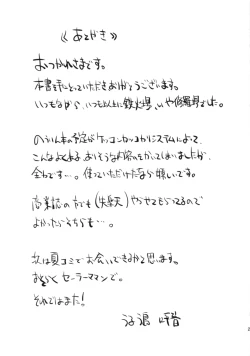 《あとがき》
おつかれさまです。
本書を手にとっていただきありがとうございます。
いつもながら、いつも以上に鉄火場、いや修羅場でした。
のうりん本の予定がケッコンカッコカリシステムによって、
こんなよくある、ありそうなお話をかいてしまいましたが
全わです…。使っていただけたなら嬉しいです。
商業誌の方でも(失楽天)やらせてもらってるので
よかったらそちらも…。
次は夏コミでお会いできるかと思います。
おそらくセーラーママンで。
それではまた!
2